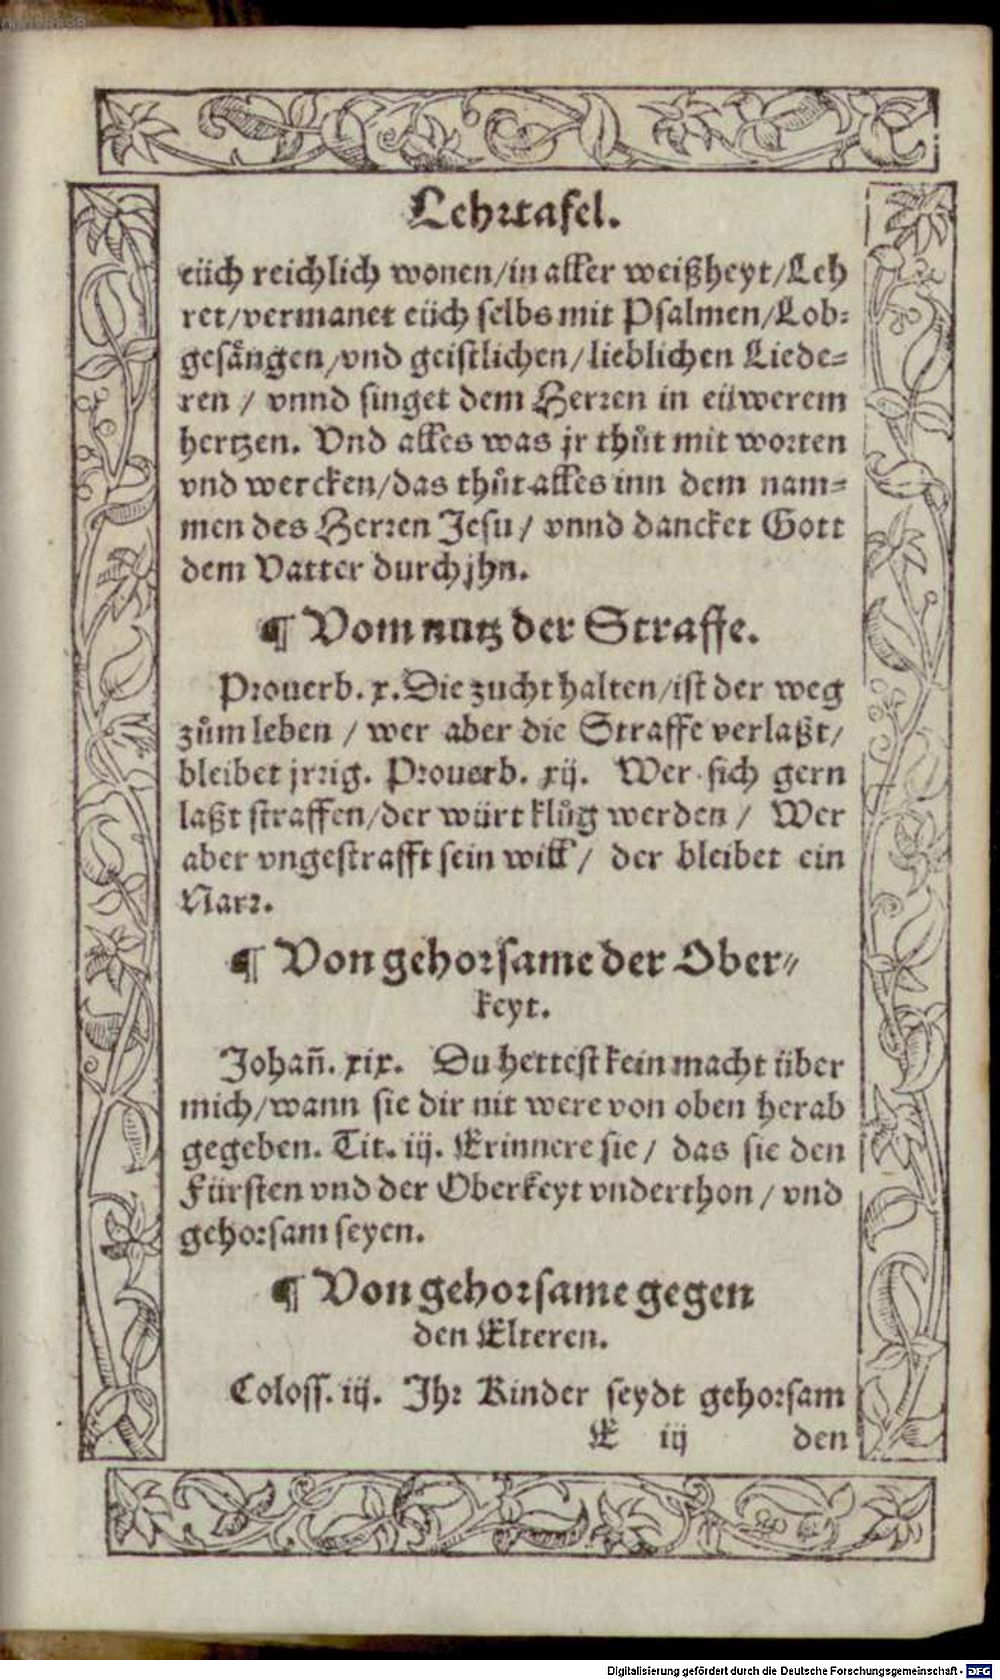 Lehrtafel.
eüch reichlich wonen/in aller weißheyt/Leh
ret/vermanet eüch selbs mit Psalmen/Lob-
gesängen/vnd geistlichen/lieblichen Liede-
ren / vnnd singet dem Herren in eüwerem
hertzen. Vnd alles was jr thůt mit worten
vnd wercken/das thůt alles inn dem nam-
men des Herren Jesu / vnnd dancket Gott
dem Vatter durch jhn.
¶ Vom nutz der Straffe.
Prouerb. x. Die zucht halten/ist der weg
zům leben / wer aber die Straffe verlaßt/
bleibet jrrig. Prouerb. xij. Wer sich gern
laßt straffen/der würt klůg werden / Wer
aber vngestrafft sein will / der bleibet ein
Narr.
¶ Von gehorsame der Ober-
keyt.
Johañ. xix. Du hettest kein macht über
mich/wann sie dir nit were von oben herab
gegeben. Tit. iij. Erinnere sie / das sie den
Fürsten vnd der Oberkeyt vnderthon / vnd
gehorsam seyen.
¶ Von gehorsame gegen
den Elteren.
Coloss. iij. Ihr Kinder seydt gehorsam
E iij den
Digitalisierung gefördert durch die Deutsche Forschungsgemeinschaft - DFG